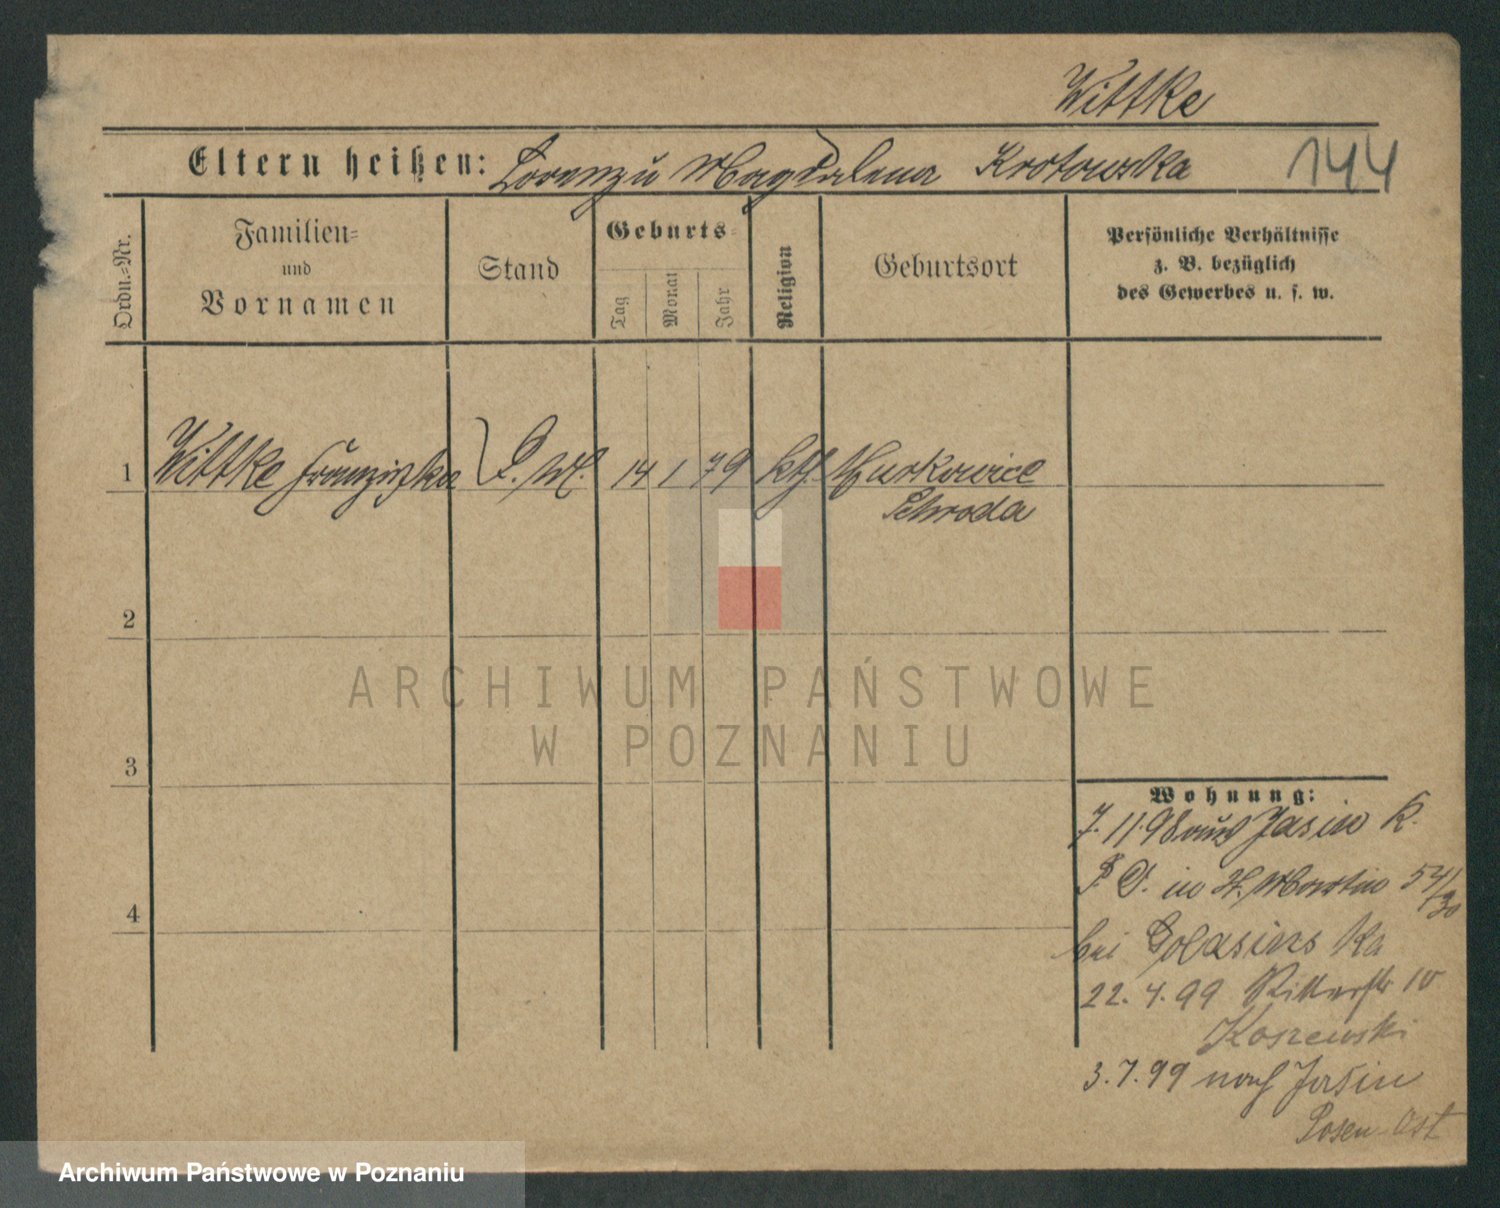 Wittke
Eltern heißen: Lorenz u Magdalena Krotowska
144
Ordn.=Nr.
Familien=
und
Vornamen
Stand
Geburts=
Tag
Monat
Jahr
Religion
Geburtsort
Persönliche Verhältnisse
z. B. bezüglich
des Gewerbes u. s. w.
1 Wittke Franziska D. M. 14 1 79 kth. Murkowice
Schroda
2
3
4
Wohnung:
7. 11. 98 aus Jasin K.
P. O. in St. Martin 54/30
bei Golasinska
22. 4. 99 Ritterstr 10
Koszewski
3. 7. 99 nach Jasin
Posen Ost
ARCHIWUM PAŃSTWOWE
W POZNANIU
Archiwum Państwowe w Poznaniu